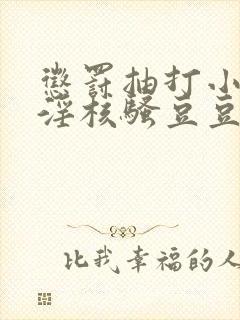 惩罚抽打小
淫核骚豆豆
比我幸福的人